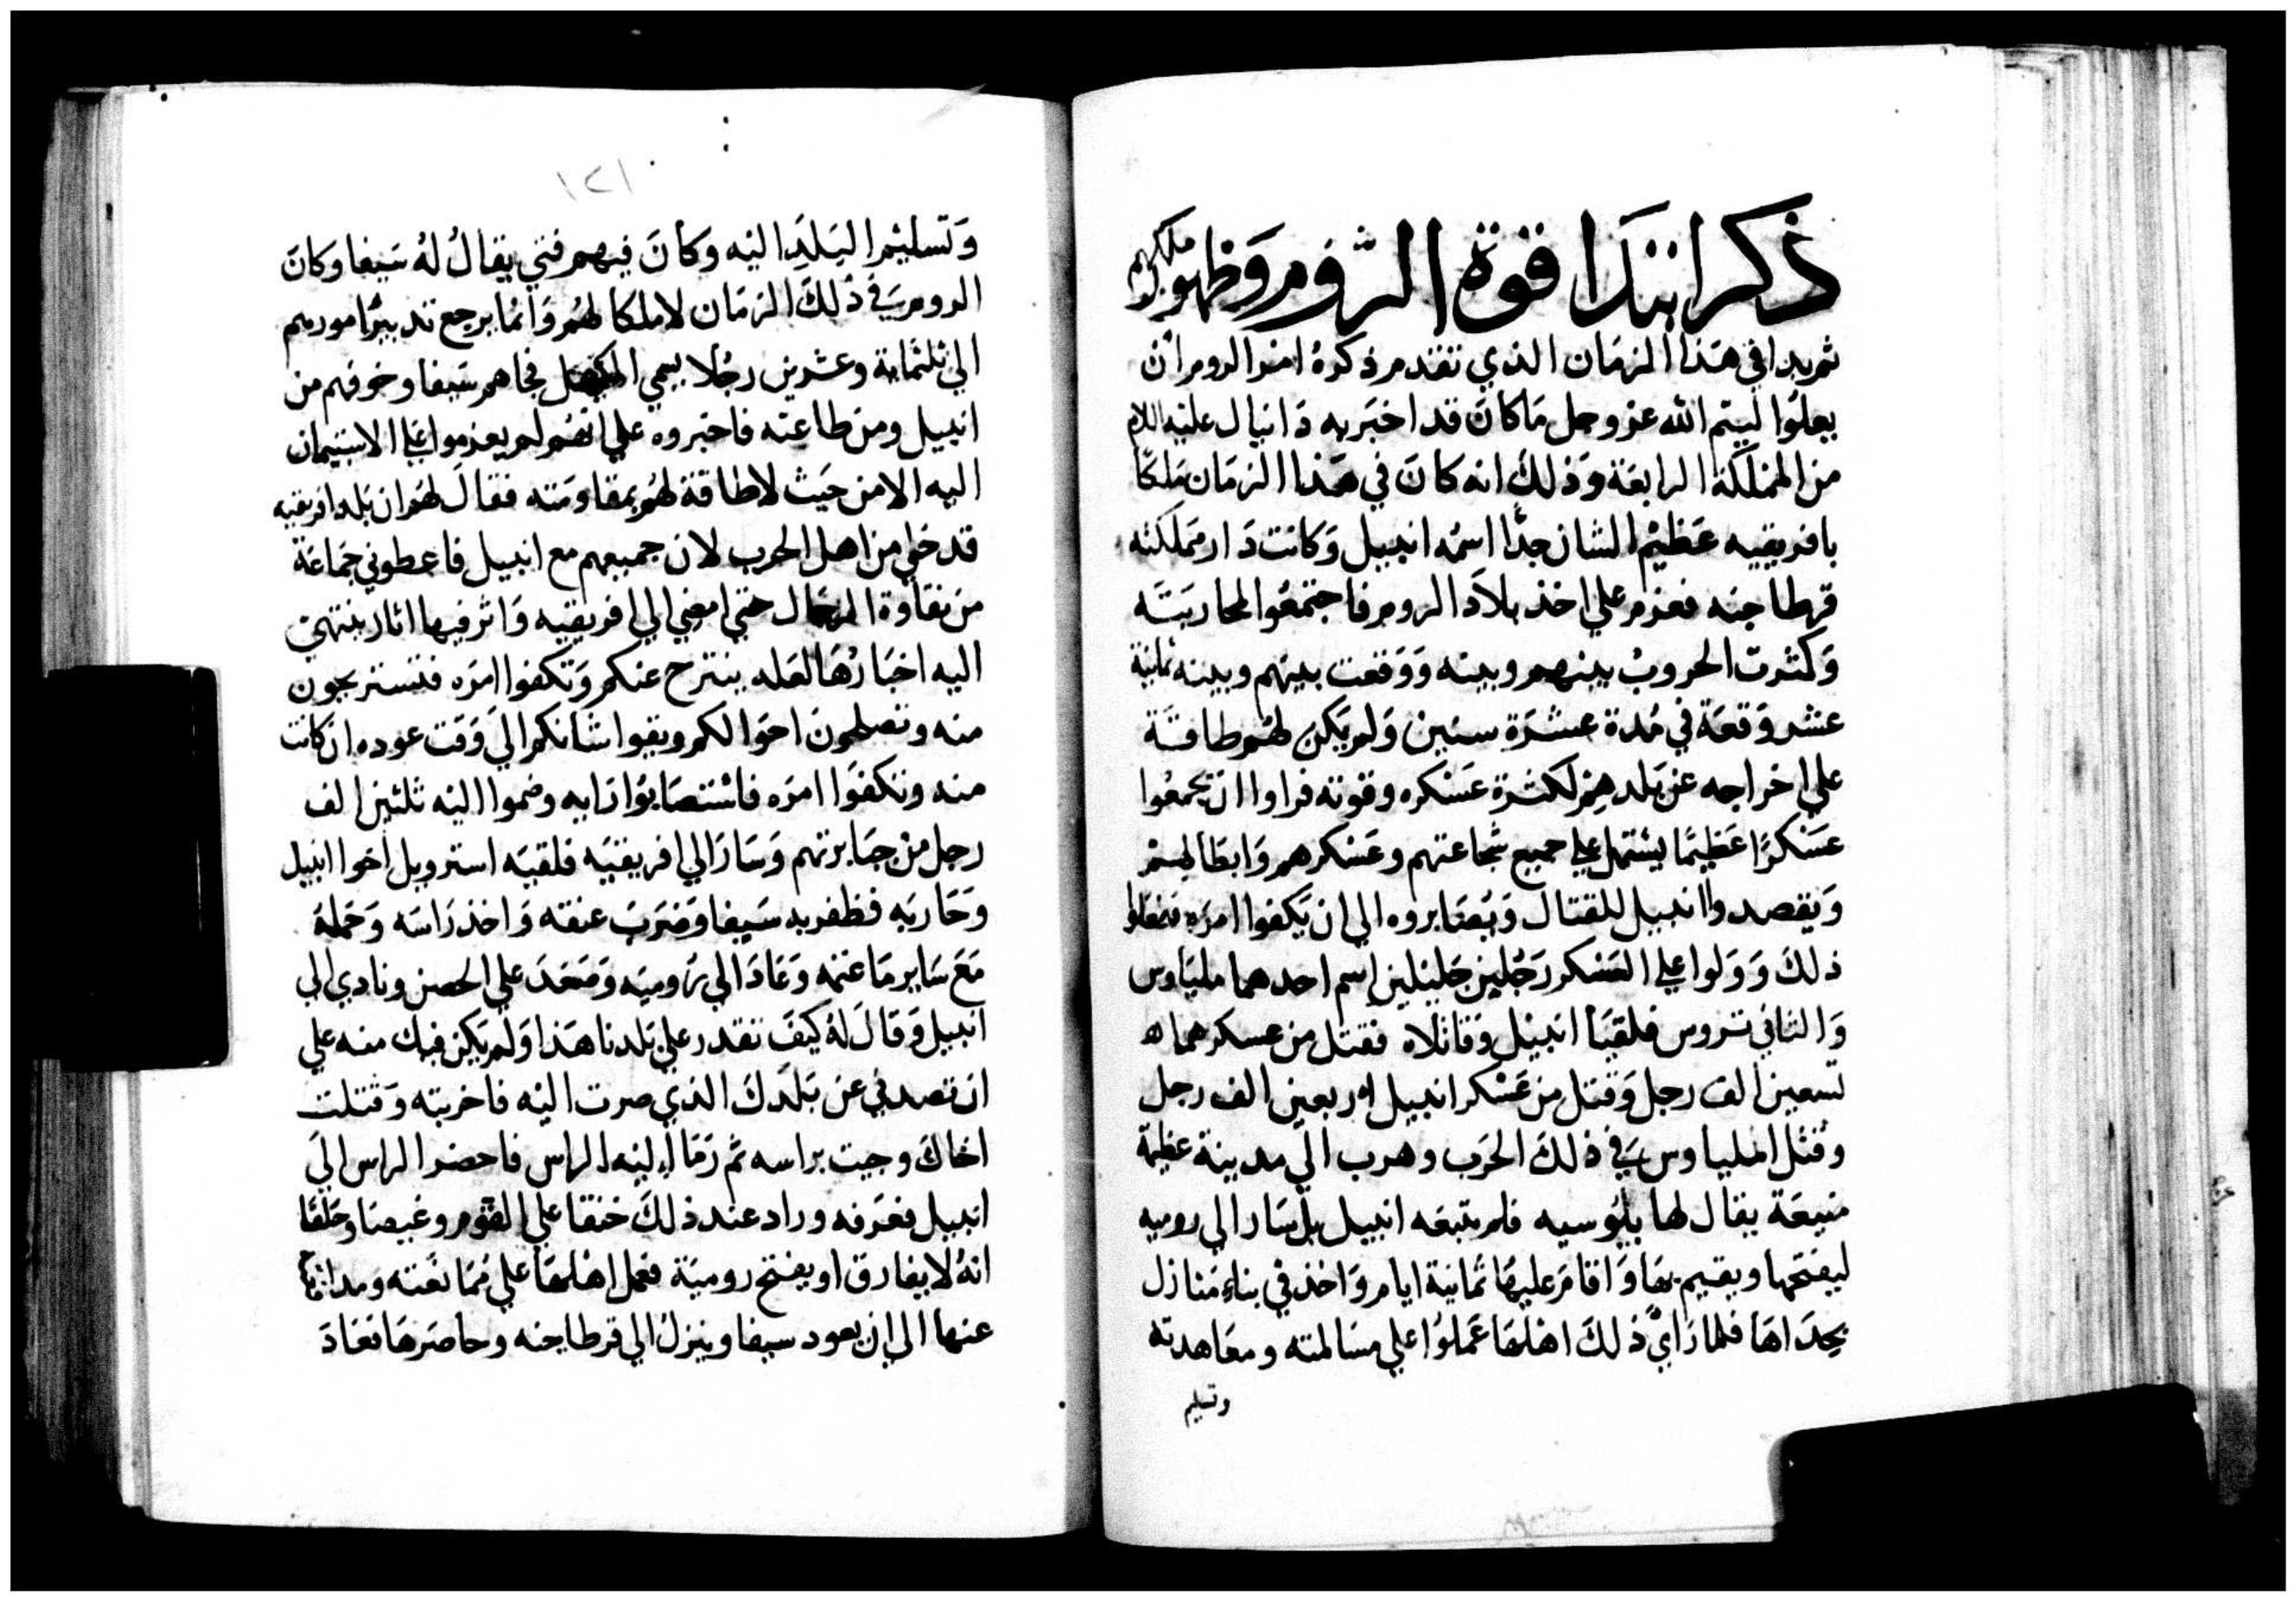 ذكر ابتدا قوة الروم وظهور ملكهم
ثم بدا في هذا الزمان الذي تقدم ذكره امر الروم ان
يعلوا ليتم الله عز وجل ما كان قد اخبر به دانيال عليه السلام
من المملكة الرابعة وذلك انه كان في هذا الزمان ملكا
بافريقيه عظيم الشان جدا اسمه انبيل وكانت دار مملكته
قرطاجنه فعزم على اخذ بلاد الروم فاجتمعوا لمحاربته
وكثرت الحروب بينهم وبينه ووقعت بينهم وبينه ثمانية
عشر وقعة في مدة عشرة سنين ولم يكن لهم طاقة
علي اخراجه عن بلدهم لكثرة عسكره وقوته فراوا ان يجمعوا
عسكرا عظيما يشتمل علي جميع شجاعتهم وعسكرهم وابطالهم
ويقصدوا انبيل للقتال ويصابروه الي ان يكفوا امره ففعلوا
ذلك وولوا علي العسكر رجلين جليلين اسم احدهما ملياوس
والثاني تروس فلقيا انبيل وقاتلاه فقتل من عسكرهما
تسعين الف رجل وقتل من عسكر انبيل اربعين الف رجل
وقتل املياوس في ذلك الحرب وهرب الي مدينة عظيمة
منيعة يقال لها بلوسيه فلم يتبعه انبيل بل سار الي روميه
ليفتحها ويقيم بها واقام عليها ثمانية ايام واخذ في بناء منازل
بحداها فلما راي ذلك اهلها عملوا علي مسالمته ومعاهدته
وتسليم
١٢١
وتسليم البلد اليه وكان فيهم فتي يقال له سيفا وكان
الروم في ذلك الزمان لا ملكا لهم وانما يرجع تدبير امورهم
الي ثلثماية وعشرين رجلا يسمي فجاهم سيفا وخوفهم من
انبيل ومن طاعته فاخبروه علي انهم لم يعزموا علي الاستيمان
اليه الا من حيث لا طاقة لهم بمقاومته فقال لهم ان بلد افريقيه
قد خلي من اهل الحرب لان جميعهم مع انبيل فاعطوني جماعة
من نقاوة الرجال حتي امضي الي افريقيه واثر فيها اثار ينتهي
اليه اخبارها لعله ينترح عنكم وتكفوا امره فتستريحون
منه وتصلحون احوالكم وبقوا شانكم الي وقت عوده ان كانت
منه وتكفوا امره فاستصابوا رايه وضموا اليه ثلثين الف
رجل من جبابرتهم وسار الي افريقيه فلقيه استروبل اخوا انبيل
وحاربه فظفر به سيفا وضرب عنقه واخذ راسه وحمله
مع ساير ما غنمه وعاد الي روميه وصعد علي الحصن ونادي الي
انبيل وقال له كيف تقدر علي بلدنا هذا ولم يكن فيك منه علي
ان تصدني عن بلدك الذي صرت اليه فاخربته وقتلت
اخاك وجيت براسه ثم رما اليه الراس فاحضر الراس الي
انبيل فعرفه وزاد عند ذلك خنقا علي القوم وغيضا وحلفا
انه لا يفارق او يفتح رومية فعمل اهلها علي ممانعته ومدافعته
عنها الي ان يعود سيفا وينزل الي قرطاجنه وحاصرها فعاد